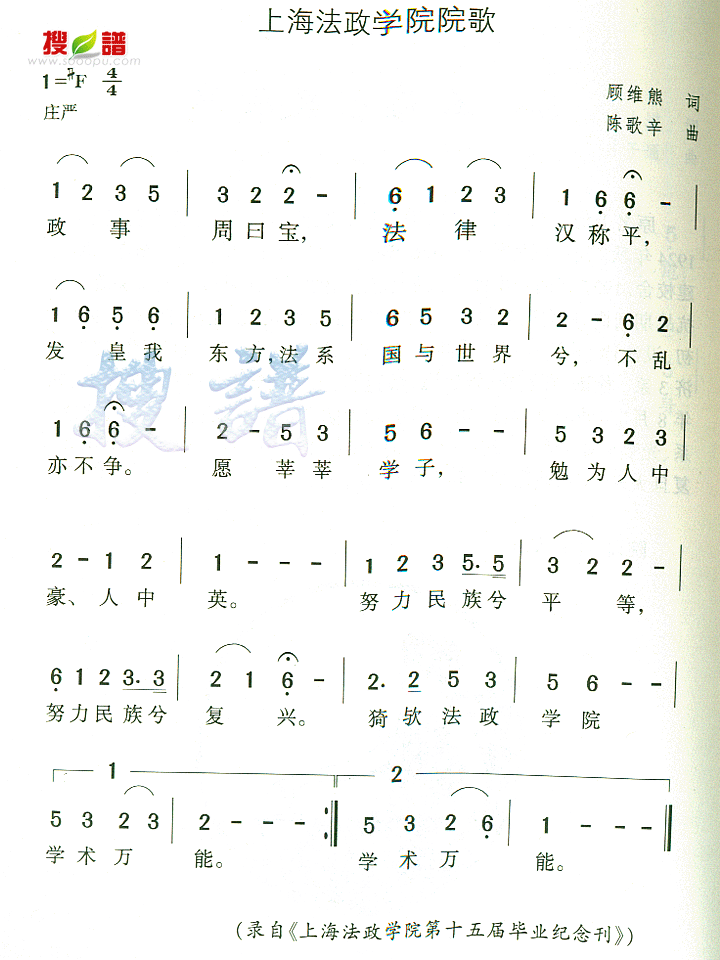 上海法政学院院歌
搜谱
www.sooopu.com
1=F 4/4
庄严
顾维熊 词
陈歌辛 曲
1 2 3 5 | 3 2 2 - | 6 1 2 3 | 1 6 6 - |
政 事 周曰宝, 法 律 汉称平,
1 6 5 6 | 1 2 3 5 | 6 5 3 2 | 2 - 6 2 |
发 皇我 东方,法系 国与世界 兮, 不乱
1 6 6 - | 2 - 5 3 | 5 6 - - | 5 3 2 3 |
亦不争。 愿 莘莘 学子, 勉为人中
2 - 1 2 | 1 - - - | 1 2 3 5. 5 | 3 2 2 - |
豪、人中 英。 努力民族兮 平 等,
6 1 2 3. 3 | 2 1 6 - | 2. 2 5 3 | 5 6 - - |
努力民族兮 复 兴。 猗欤法政 学院
1 2
5 3 2 3 | 2 - - - :| 5 3 2 6 | 1 - - - |
学术万 能。 学术万 能。
(录自《上海法政学院第十五届毕业纪念刊》)